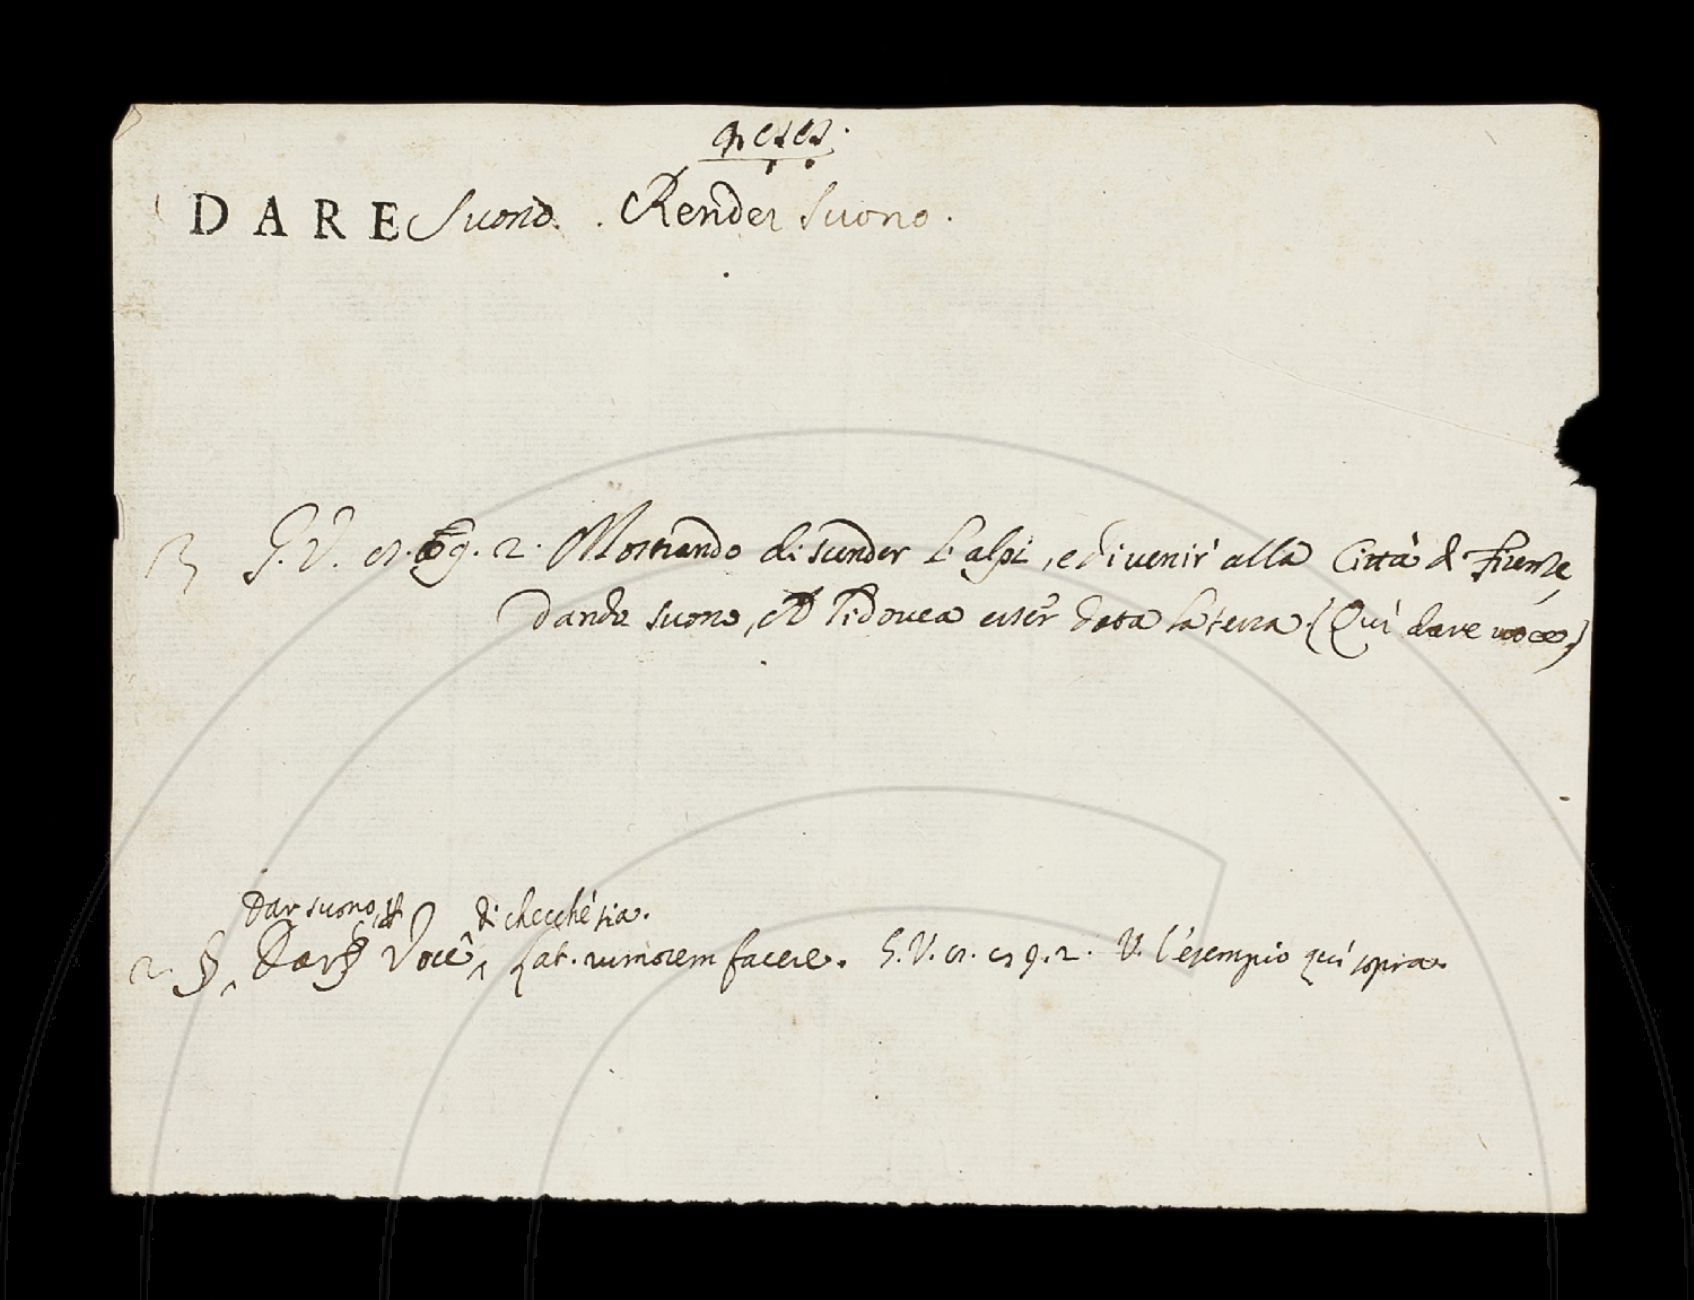 DARE Suono. Render suono.
3 G. V. 9. 2. Mostrando di scender l'alpi, e di venir' alla Città di Firenze,
dando suono, che li dovea esser data la terra. (Qui dare voce)
Dar suono, di checché sia.
2. §. Dare Voce, Lat. rumorem facere. G. V. 9. 2. V. l'esempio quì sopra.